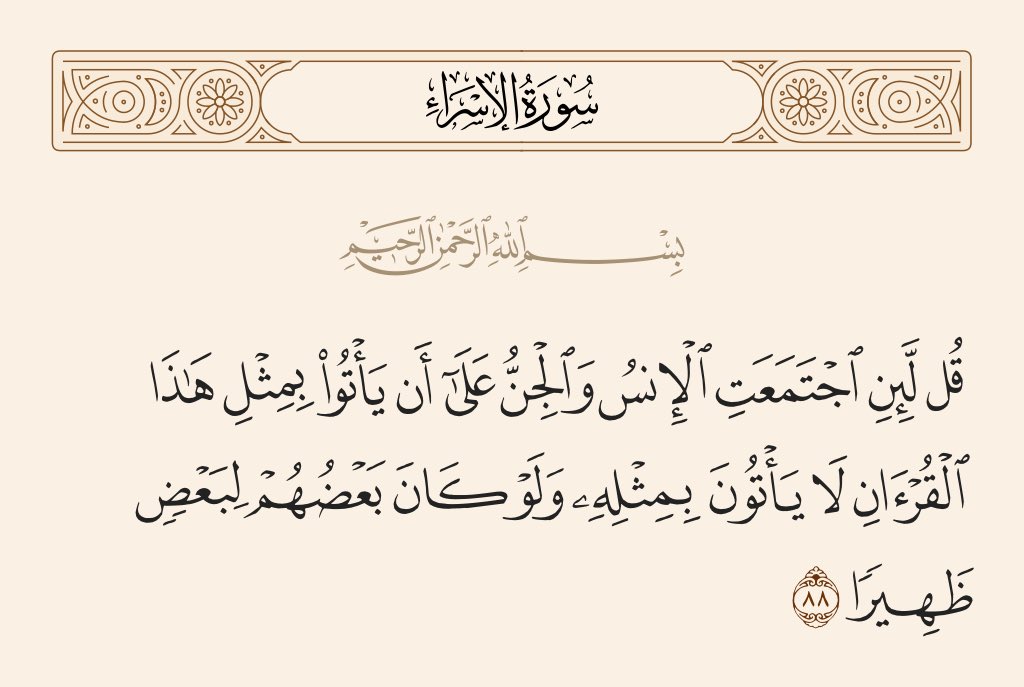 سُورَةُ الإِسْرَاءِ
بِسْمِ ٱللَّهِ ٱلرَّحْمَٰنِ ٱلرَّحِيمِ
قُل لَّئِنِ ٱجْتَمَعَتِ ٱلْإِنسُ وَٱلْجِنُّ عَلَىٰٓ أَن يَأْتُوا۟ بِمِثْلِ هَٰذَا
ٱلْقُرْءَانِ لَا يَأْتُونَ بِمِثْلِهِۦ وَلَوْ كَانَ بَعْضُهُمْ لِبَعْضٍ
ظَهِيرًا ٨٨